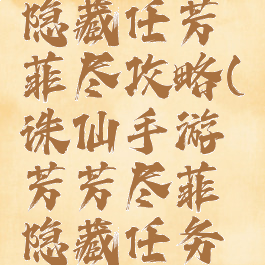 隐藏任芳
菲尽攻略(
诛仙手游
芳芳尽菲
隐藏任务